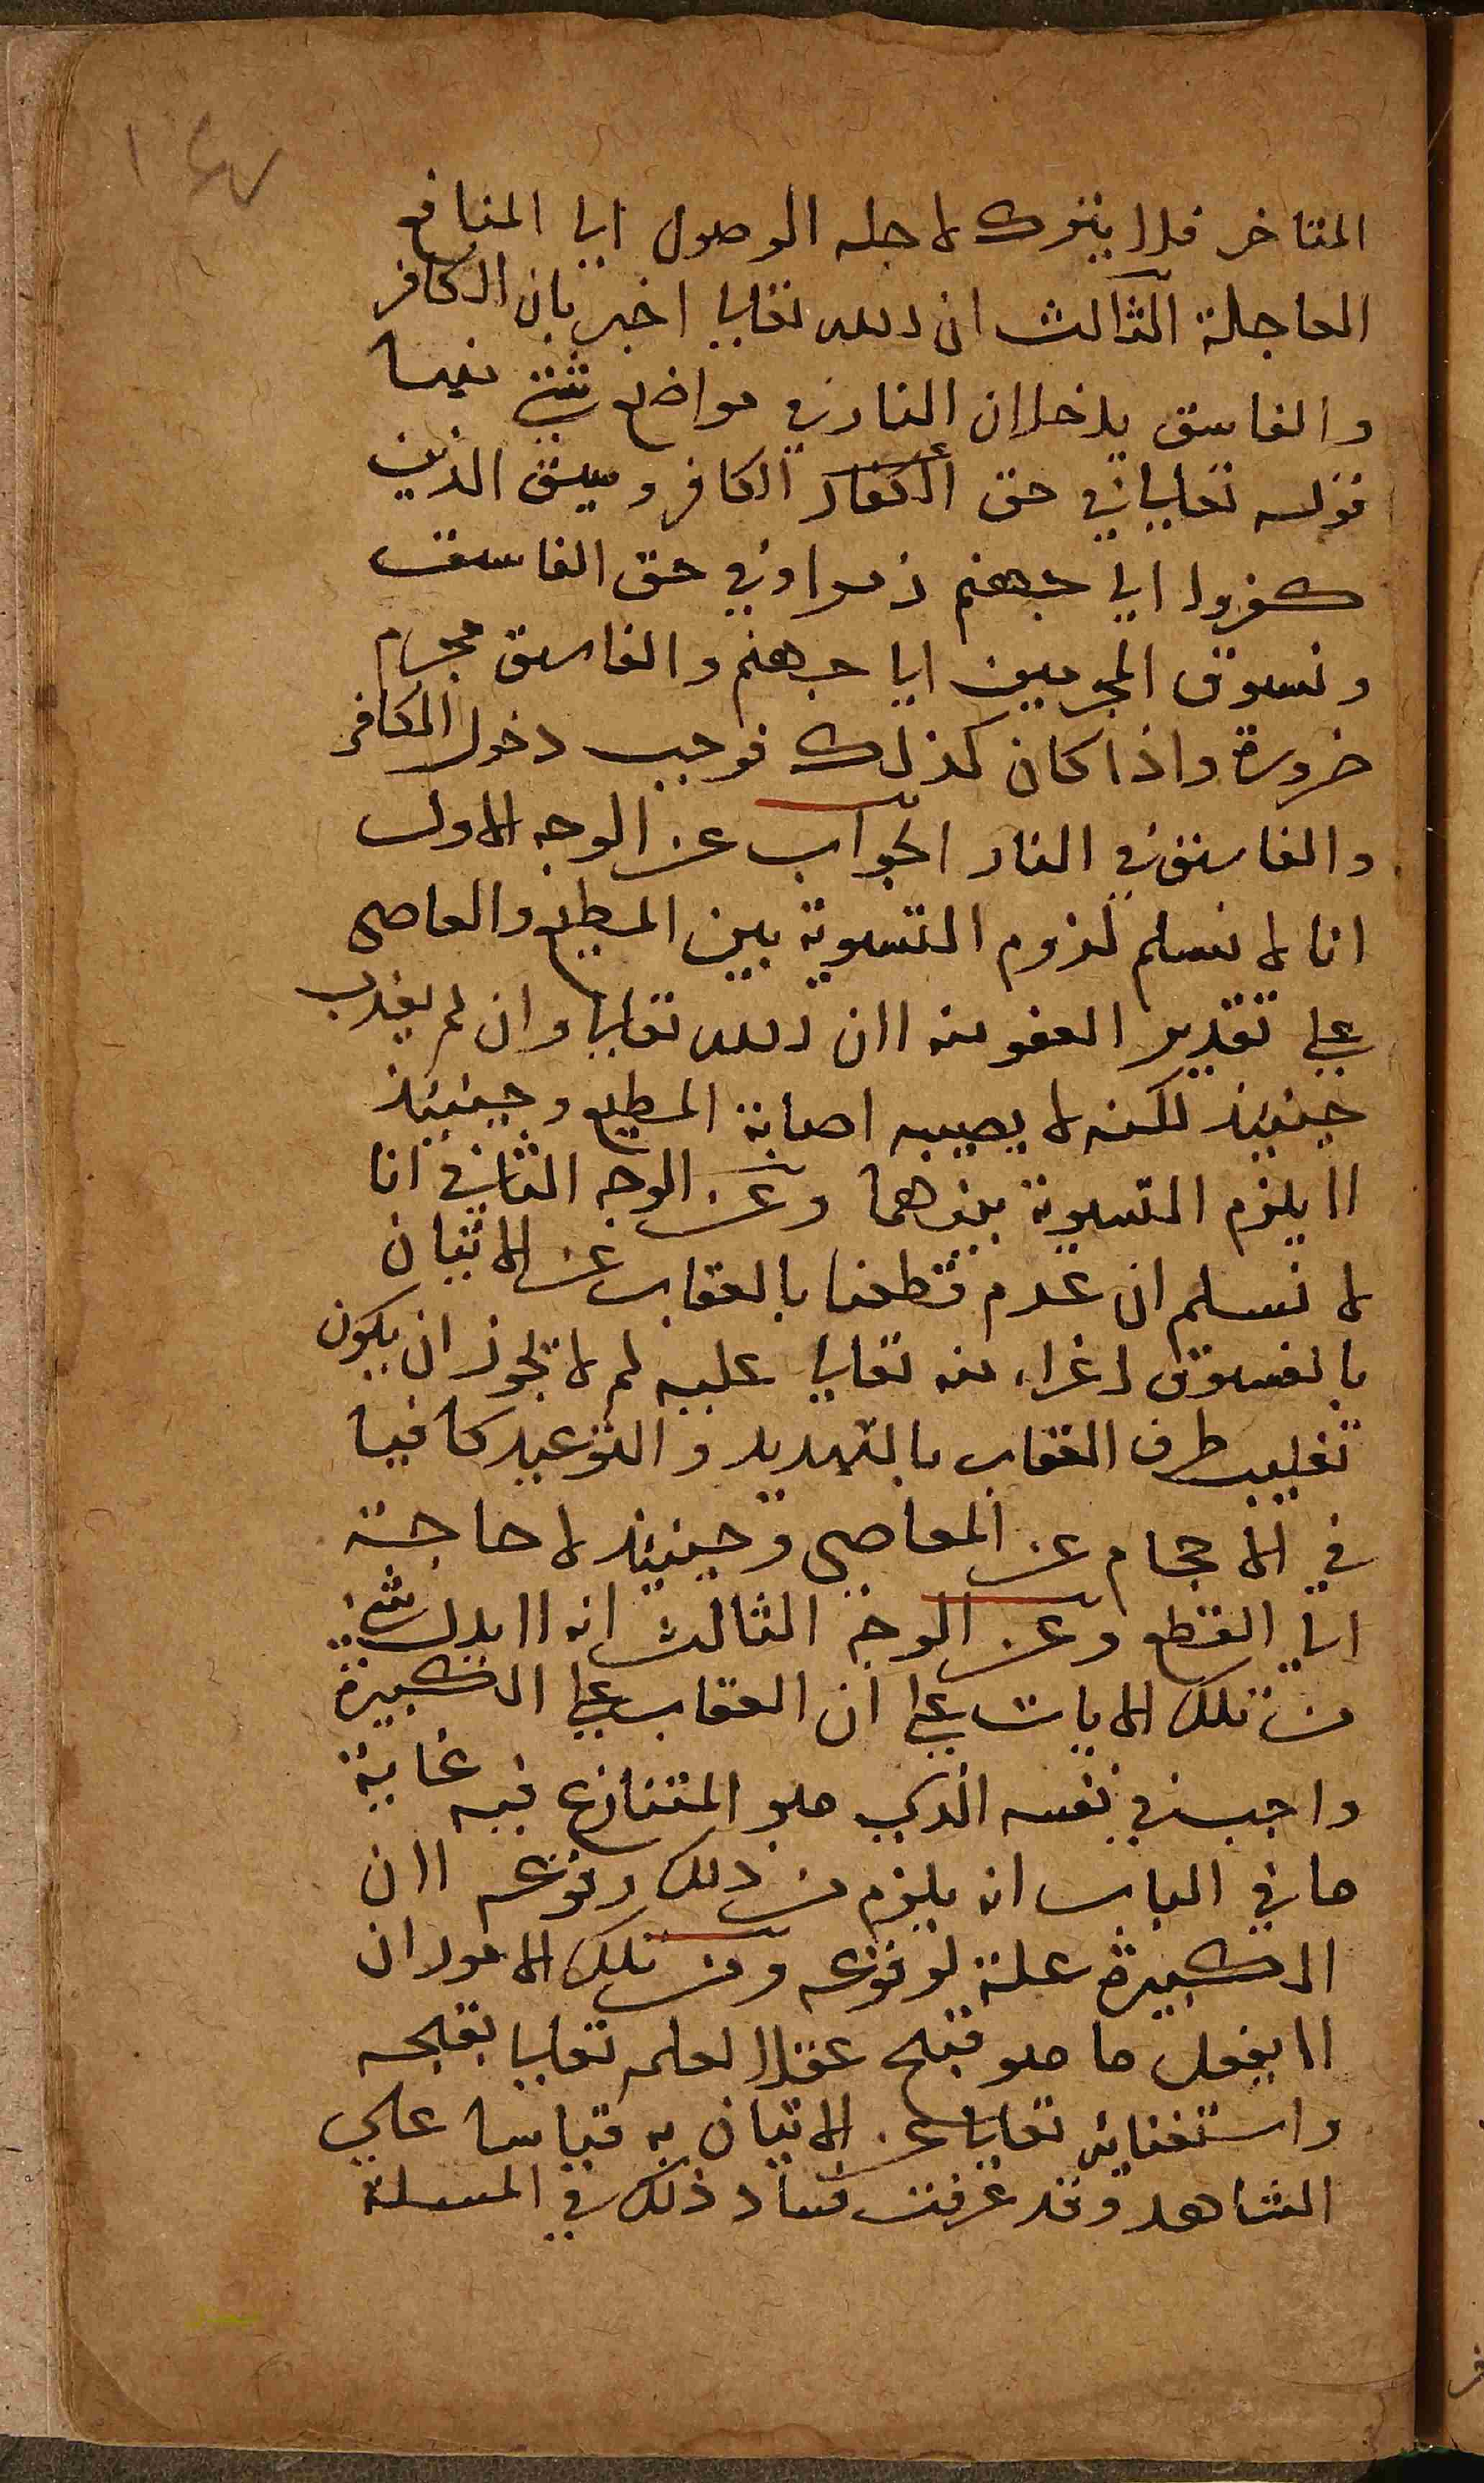 ١٤٧
المتاخر فلا يترك لاجله الوصول الى المنافع
العاجلة الثالث ان الله تعالى اخبر بان الكافر
والفاسق يدخلان النار في مواضع شتى فيها
قوله تعالى في حق الكفار الكافر وسيق الذين
كفروا الى جهنم زمرا وفي حق الفاسق
ونسوق المجرمين الى جهنم والفاسق مجرم
ضرورة واذا كان كذلك فوجب دخول الكافر
والفاسق في النار الجواب عن الوجه الاول
انا لا نسلم لزوم التسوية بين المطيع والعاصى
على تقدير العفو منه لان الله تعالى وان لم يعذب
حينيذ لكنه لا يصيبه اصابة المطيع وحينيذ
لا يلزم التسوية بينهما وعن الوجه الثاني انا
لا نسلم ان عدم قطعنا بالعقاب عن الاتيان
بالفسوق اغراء منه تعالى عليه لم لا يجوز ان يكون
تغليب طرف العقاب بالتهديد والتوعيد كافيا
في الاحجام عن المعاصي وحينيذ لا حاجة
الى القطع وعن الوجه الثالث انه لا يدل شي
من تلك الايات على ان العقاب على الكبيرة
واجب في نفسه الذي هو المتنازع فيه غاية
ما في الباب انه يلزم من ذلك وقوعه لان
الكبيرة علة لوقوعه ومن تلك الامور ان
لا يفعل ما هو قبح عقلا لعلمه تعالى بقبحه
واستغنايه تعالى عن الاتيان به قياسا على
الشاهد وقد عرفت فساد ذلك في المسلة